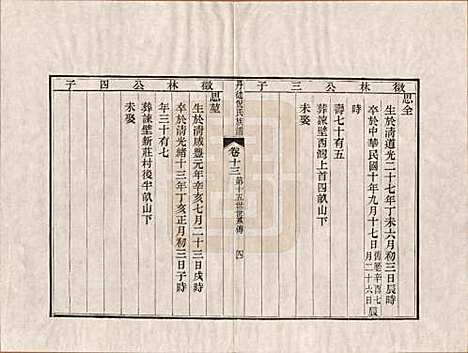 徵林公三子
思全
生於清道光二十七年丁未六月初三日辰時
卒於中華民國十年九月十七日舊曆辛酉七月二十六日
時
壽七十有五
葬諫壁西灣上首四畝山下
未娶
丹徒倪氏族譜
卷十三 第十五世世系傳 四
徵林公四子
思堃
生於清咸豐元年辛亥七月二十三日戌時
卒於清光緒十三年丁亥正月初三日子時
年三十有七
葬諫壁新莊村後半畝山下
未娶